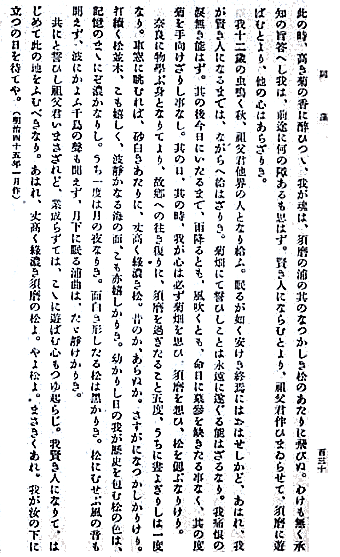 此の時、高き菊の香に醉ひつゝ、我が魂は、須磨の浦の其のなつかしき松のあたりに飛びぬ。わけも無く承
知の旨答へし我は、前途に何の障あるも思はず。賢き人にならむとより、祖父君伴ひまゐらせて、須磨に遊
ばむとより、他の心はあらざりき。
我十二歳の虫鳴く秋、祖父君他界の人となり給ふ。眠るが如く安けき終焉にはおはせしかど、あはれ、我
が賢き人になるまでは、ながらへ給はざりき。菊畑にて誓ひしことは永遠に遂ぐる能はざるなり。我痛恨の
涙無き能はず。其の後今日にいたるまで、雨降るとも、風吹くとも、命日に墓參を缺きたる事なく、其の度
菊を手向けざりし事なし。其の日、其の時、我が心は必ず菊畑を思ひ、須磨を想ひ、松を偲ぶなりけり。
奈良に物學ぶ身となりてより、故郷への往き復りに、須磨を過ぎたること五度、うちに晝よぎりしは一度
なり。車窓に眺むれば、砂白きあたりに、丈高く綠濃き松。昔のか、あらぬか。さすがになつかしかりけり。
打續く松並木、こも嬉しく、波靜かなる海の面、こも亦嬉しかりき。幼かりし日の我が歷史を包む松の色は、
記憶のまゝにぞ濃かなりし。うち一度は月の夜なりき。面白き形したる松は黑かりき。松にむせぶ風の音も
聞えず、波にかよふ千鳥の聲も聞えず、月下に眠る浦曲は、たゞ靜けかりき。
共にと誓ひし祖父君いまさざれど、業成らずては、こゝに遊ばむ心もつゆ起らじ。我賢き人になりて、は
じめて此の地をふむべきなり。あはれ、丈高く綠濃き須磨の松よ。やよ松よ。まさきくあれ。我が汝の下に
立つの日を待てや。(明治四十五年一月作)
百三十